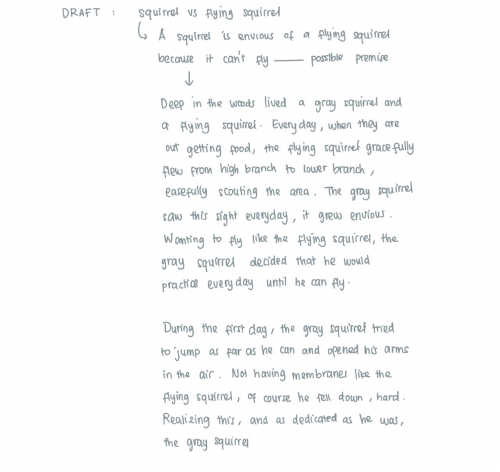 DRAFT : squirrel vs flying squirrel
A squirrel is envious of a flying squirrel
because it can't fly —— possible premise
Deep in the woods lived a gray squirrel and
a flying squirrel. Everyday, when they are
out getting food, the flying squirrel gracefully
flew from high branch to lower branch,
easefully scouting the area. The gray squirrel
saw this sight everyday, it grew envious.
Wanting to fly like the flying squirrel, the
gray squirrel decided that he would
practice everyday until he can fly.
During the first day, the gray squirrel tried
to jump as far as he can and opened his arms
in the air. Not having membranes like the
flying squirrel, of course he fell down, hard.
Realizing this, and as dedicated as he was,
the gray squirrel